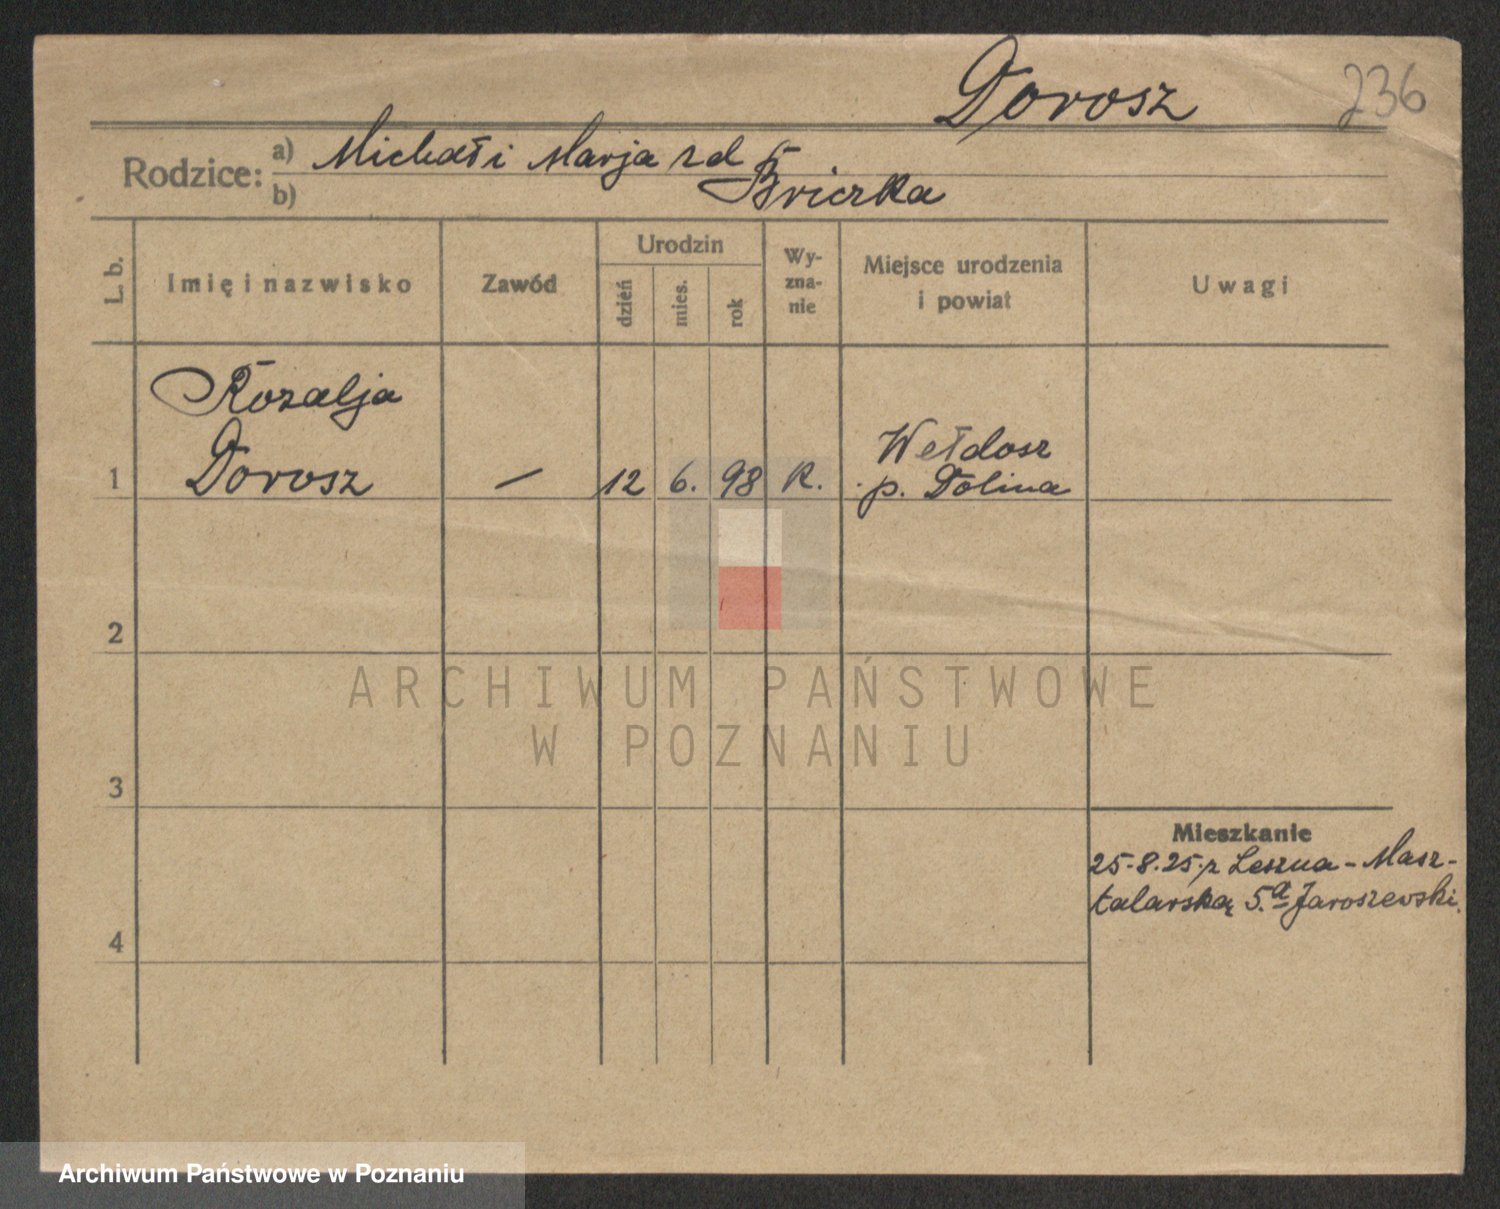 Dorosz 236
Rodzice: a) Michał i Marja zd
b) Briczka
L. b. Imię i nazwisko Zawód Urodzin dzień mies. rok Wy-zna-nie Miejsce urodzenia i powiat Uwagi
Rozalja
1 Dorosz — 12 6. 98 R. Wełdosz
p. Dolina
2
ARCHIWUM PAŃSTWOWE
W POZNANIU
3
Mieszkanie
25-8.25. z Leszna - Masz-
talarska 5.a Jaroszewski.
4
Archiwum Państwowe w Poznaniu